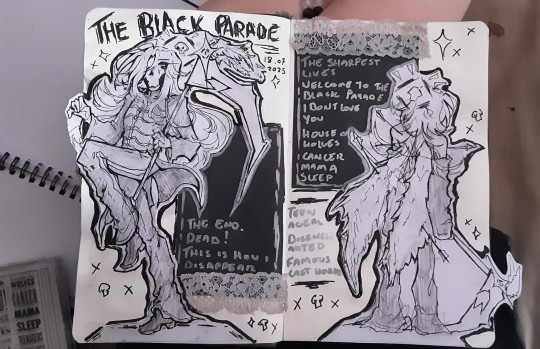 THE BLACK PARADE
18.07
2025
THE END.
DEAD!
THIS IS HOW I
DISAPPEAR
THE SHARPEST
LIVES
WELCOME TO THE
BLACK PARADE
I DON'T LOVE
YOU
HOUSE OF
WOLVES
CANCER
MAMA
SLEEP
TEEN
AGERS
DISENCH
ANTED
FAMOUS
LAST WORDS
WOLVES
CANCER
MAMA
SLEEP
TEENAGERS